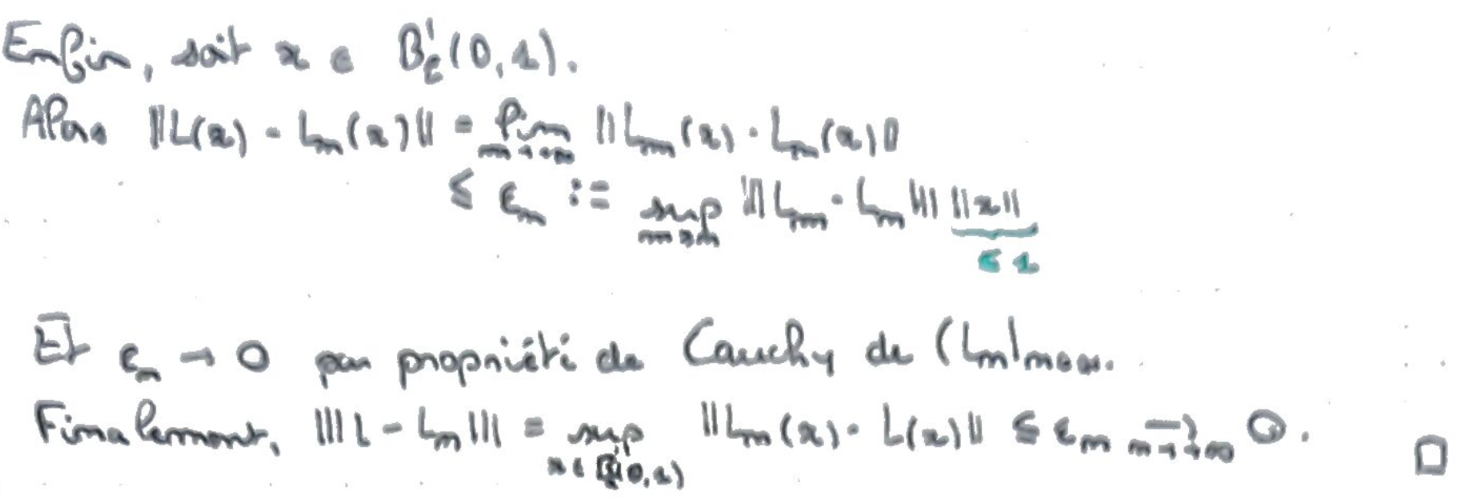 Enfin, soit x ∈ B'_E(0,1).
Alors ||L(x) - L_n(x)|| = lim_{m→+∞} ||L_m(x) - L_n(x)||
≤ ε_n := sup_{m≥n} |||L_m - L_n||| ||x||
≤ 1
Et ε_n → 0 par propriété de Cauchy de (L_n)_{n∈ℕ}.
Finalement, |||L - L_n||| = sup_{x∈B'(0,1)} ||L_n(x) - L(x)|| ≤ ε_n →_{n→+∞} 0. □